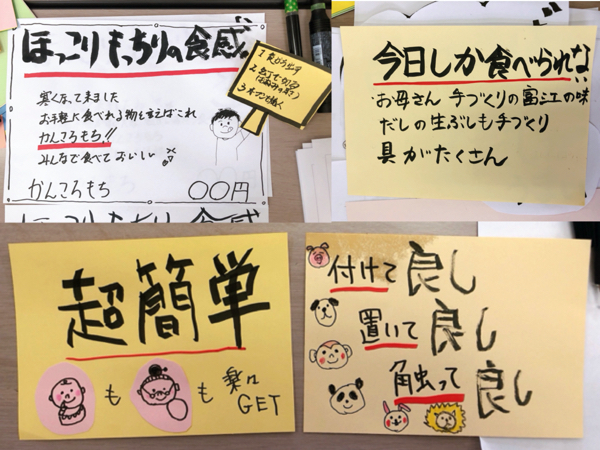 ほっこりもっちりの食感。
寒くなって来ました
お手軽に食べれる物と言えばこれ
かんころもち!!
みんなで食べておいしい
かんころもち
〇〇円
3オーブンで焼く
ほっこりもっちりの食感
今日しか食べられない
お母さん手づくりの富江の味
だしの生ぶしも手づくり
具がたくさん
超簡単
も
も
楽々
GET
付けて良し
置いて良し
触って良し